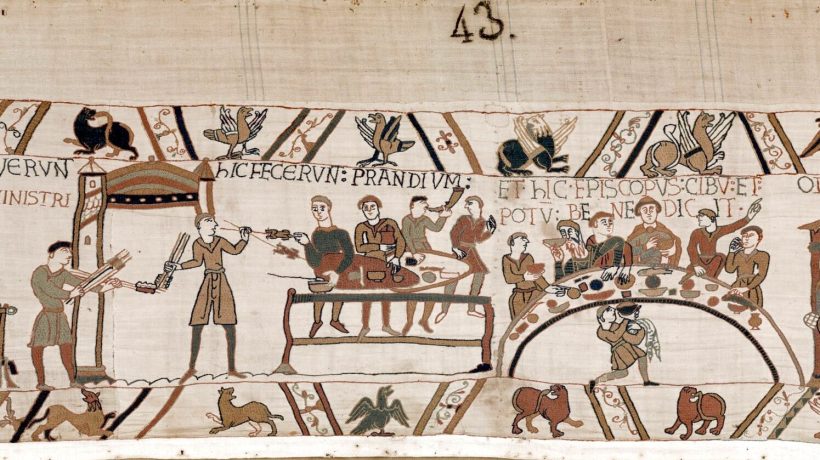 43.
VERVNT
MINISTRI
hIC FECERVN: PRANDIVM:
ET hIC·EPISCOPVS:CIBV:ET:
POTV: BE NE DIC IT·